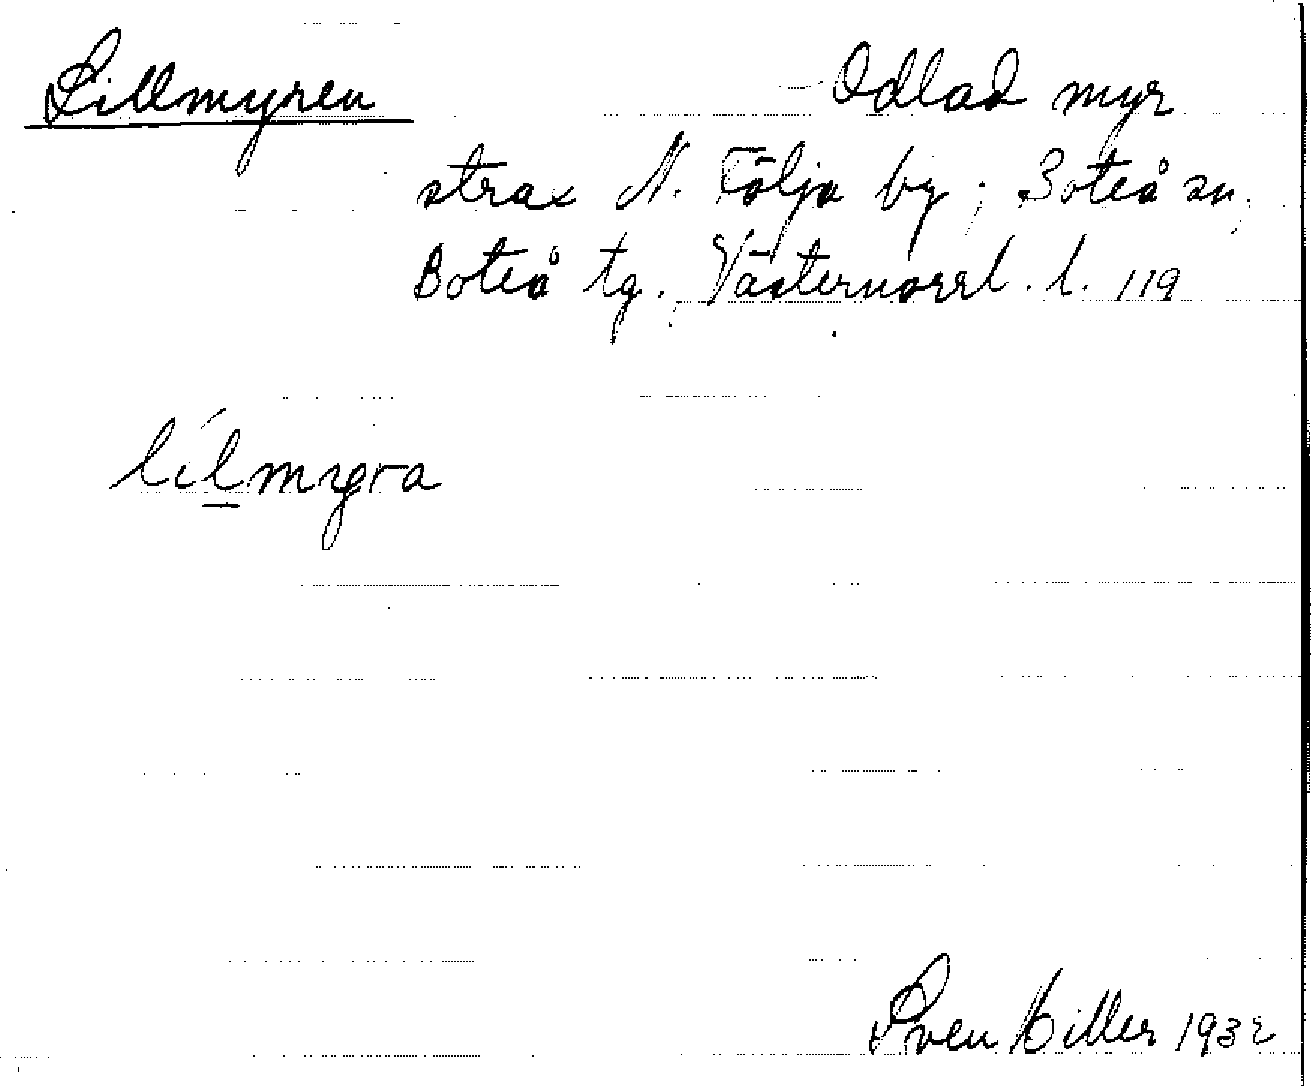 Lillmyren
Odlad myr
strax N. Följa by, Boteå sn,
Boteå tg. Västernorrl. l. 119
lílmyra
Sven Hiller 1932